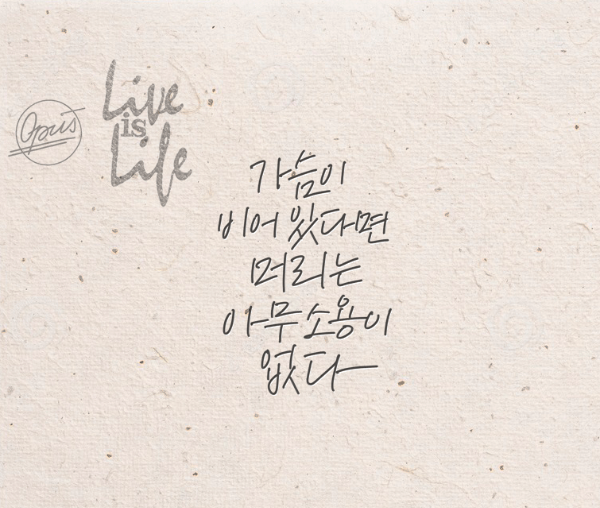 Opus
Live
is
Life
가슴이
비어 있다면
머리는
아무 소용이
없다